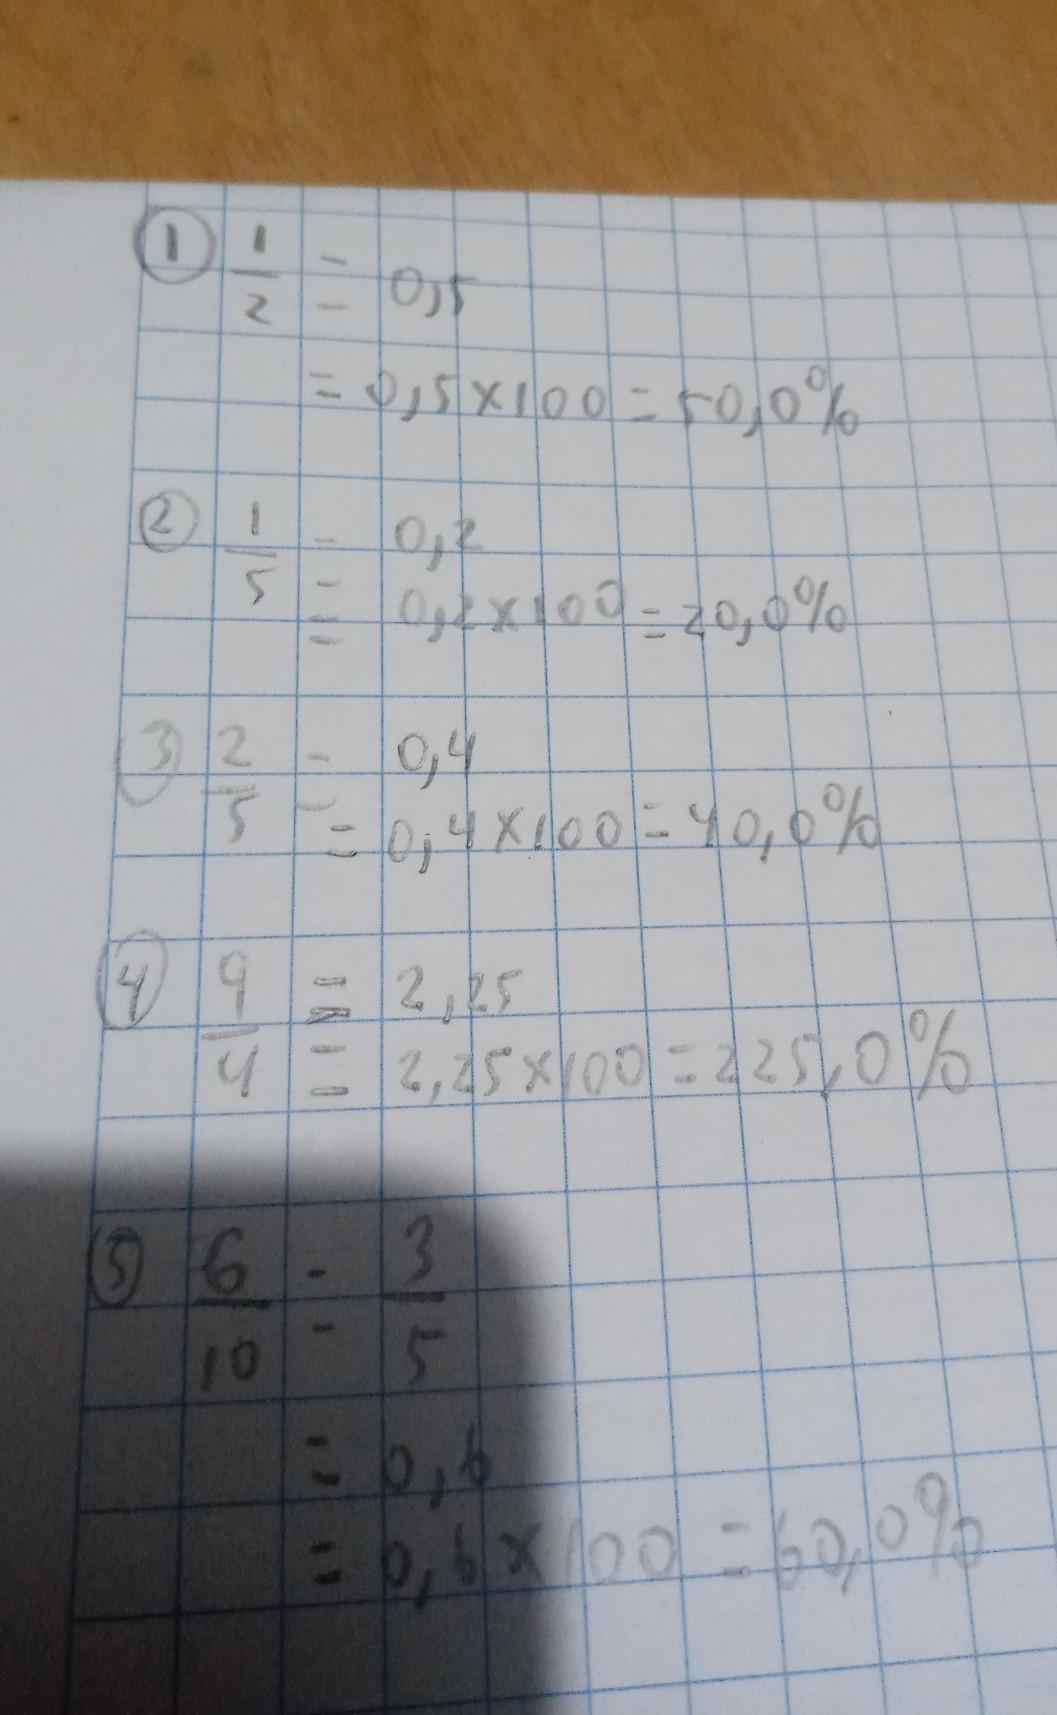 ① 1/2 = 0,5
= 0,5×100 = 50,0%
② 1/5 = 0,2
= 0,2×100 = 20,0%
③ 2/5 = 0,4
= 0,4×100 = 40,0%
④ 9/4 = 2,25
= 2,25×100 = 225,0%
⑤ 6/10 = 3/5
= 0,6
= 0,6×100 = 60,0%